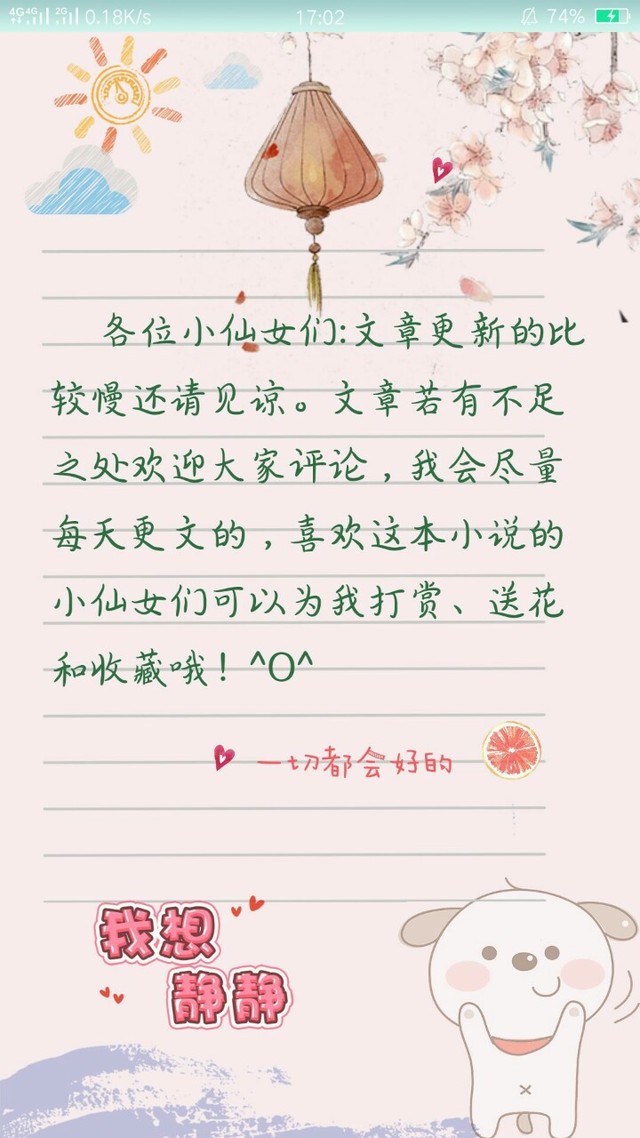 4G 4G 2G 0.18K/s 17:02 74%
各位小仙女们:文章更新的比
较慢还请见谅。文章若有不足
之处欢迎大家评论,我会尽量
每天更文的,喜欢这本小说的
小仙女们可以为我打赏、送花
和收藏哦!^O^
一切都会好的
我想
静静